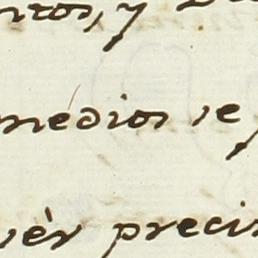 ntos, y
medios se
uèr precis